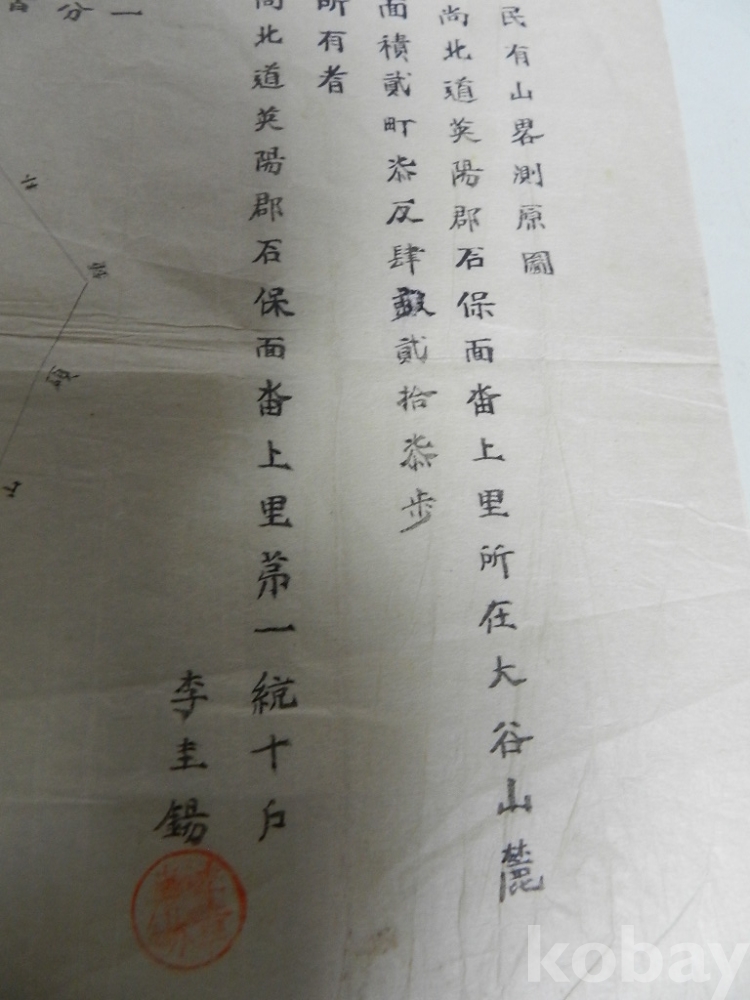 民有山畧測原圖
尚北道英陽郡石保面畓上里所在大谷山麓
面積貳町叅反肆畝貳拾叅步
所有者
尚北道英陽郡石保面畓上里第一統十戶
李圭錫
一
分
kobay